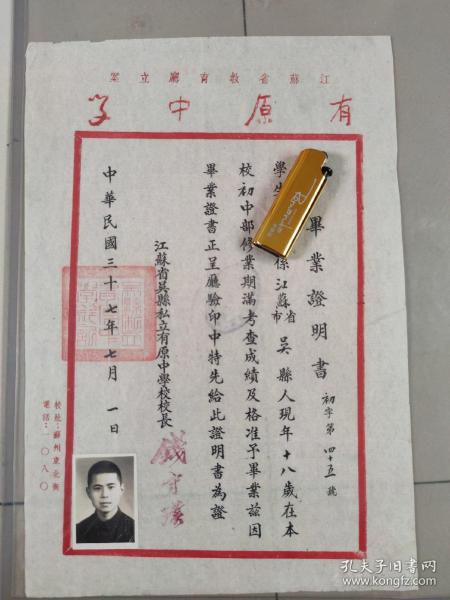 江蘇省教育廳立案
有原中学
畢業證明書
初字第四十五號
學生 係江蘇省市吳縣人現年十八歲在本
校初中部修業期滿考查成績及格准予畢業茲因
畢業證書正呈廳驗印中特先給此證明書為證
江蘇省吳縣私立有原中學校校長
中華民國三十七年七月一日
校址:蘇州東北街
電話:一〇八〇
孔夫子旧书网
www.kongfz.com